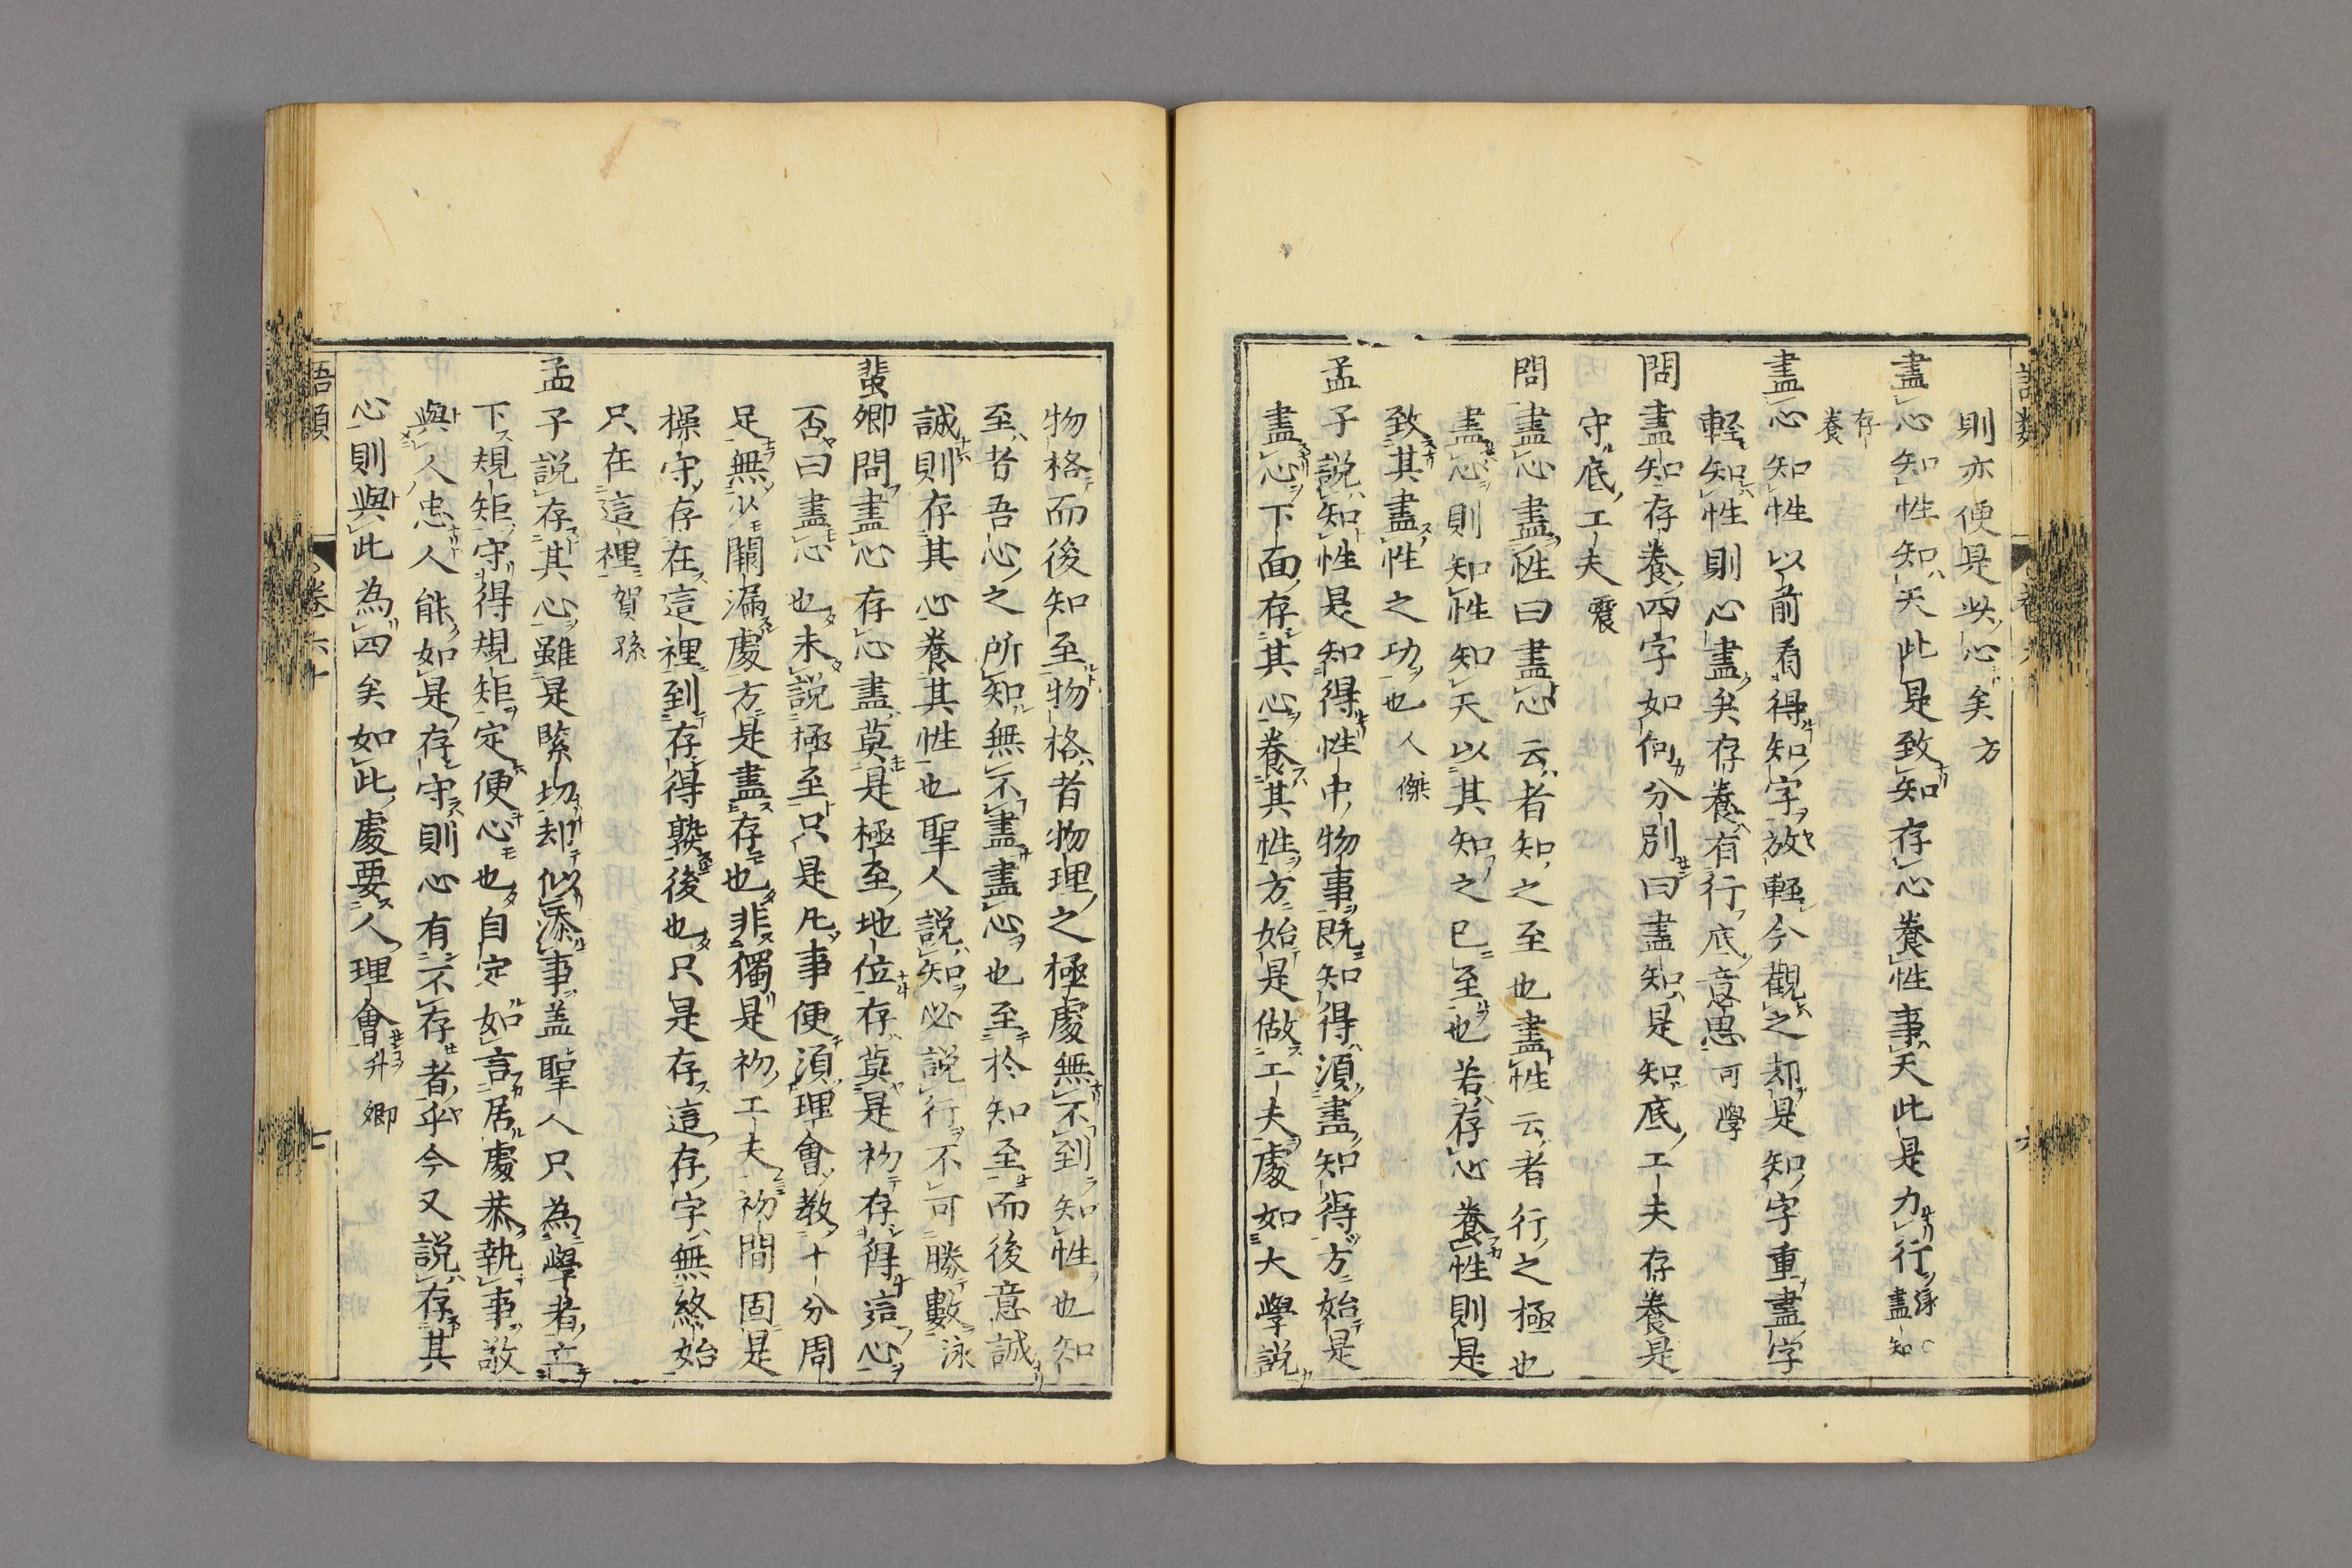 則亦便是此心矣方
盡心知性知天此是致知存心養性事天此是力行泳○盡知
存養
盡心知性以前看得知字放輕今觀之却是知字重盡字
輕知性則心盡矣存養有行底意思可學
問盡知存養四字如何分別曰盡知是知底工夫存養是
守底工夫震
問盡心盡性曰盡心云者知之至也盡性云者行之極也
盡心則知性知天以其知之已至也若存心養性則是
致其盡性之功也人傑
孟子說知性是知得性中物事既知得須盡知得方始是
盡心下面存其心養其性方始是做工夫處如大學說
物格而後知至物格者物理之極處無不到知性也知
至者吾心之所知無不盡盡心也至於知至而後意誠
誠則存其心養其性也聖人說知必說行不可勝數泳
蜚卿問盡心存心盡莫是極至地位存莫是初存得這心
否曰盡心也未說極至只是凡事便須理會教十分周
足無少闕漏處方是盡存也非獨是初工夫初間固是
操守存在這裡到存得熟後也只是存這存字無終始
只在這裡賀孫
孟子說存其心雖是緊切却似添事盖聖人只為學者立
下規矩守得規矩定便心也自定如言居處恭執事敬
與人忠人能如是存守則心有不存者乎今又說存其
心則與此為四矣如此處要人理會升卿
語類 卷六十 七